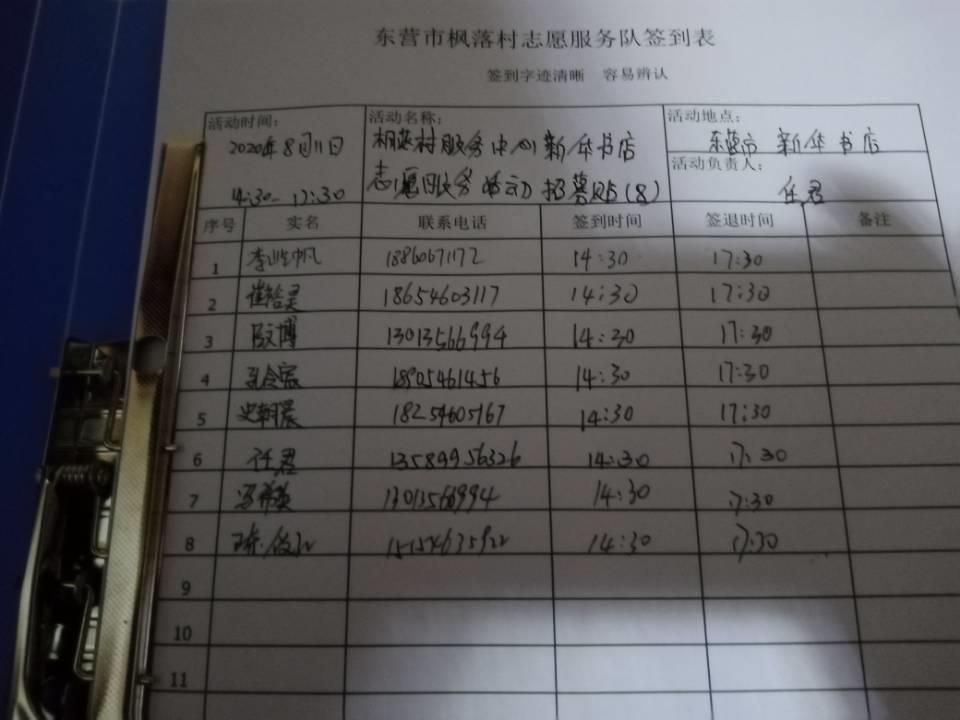 东营市枫落村志愿服务队签到表
签到字迹清晰 容易辨认
活动时间: 活动名称: 活动地点:
2020年8月11日 村服务中心新华书店 东营市 新华书店
活动负责人:
14:30-17:30 志愿服务活动招募贴(8) 任君
序号 实名 联系电话 签到时间 签退时间 备注
1 李 帆 18860671172 14:30 17:30
2 崔 灵 18654603117 14:30 17:30
3 博 13013566994 14:30 17:30
4 18905461456 14:30 17:30
5 史朝晨 18254605167 14:30 17:30
6 任君 13589956326 14:30 17:30
7 冯 13013566994 14:30 17:30
8 14:30 17:30
9
10
11